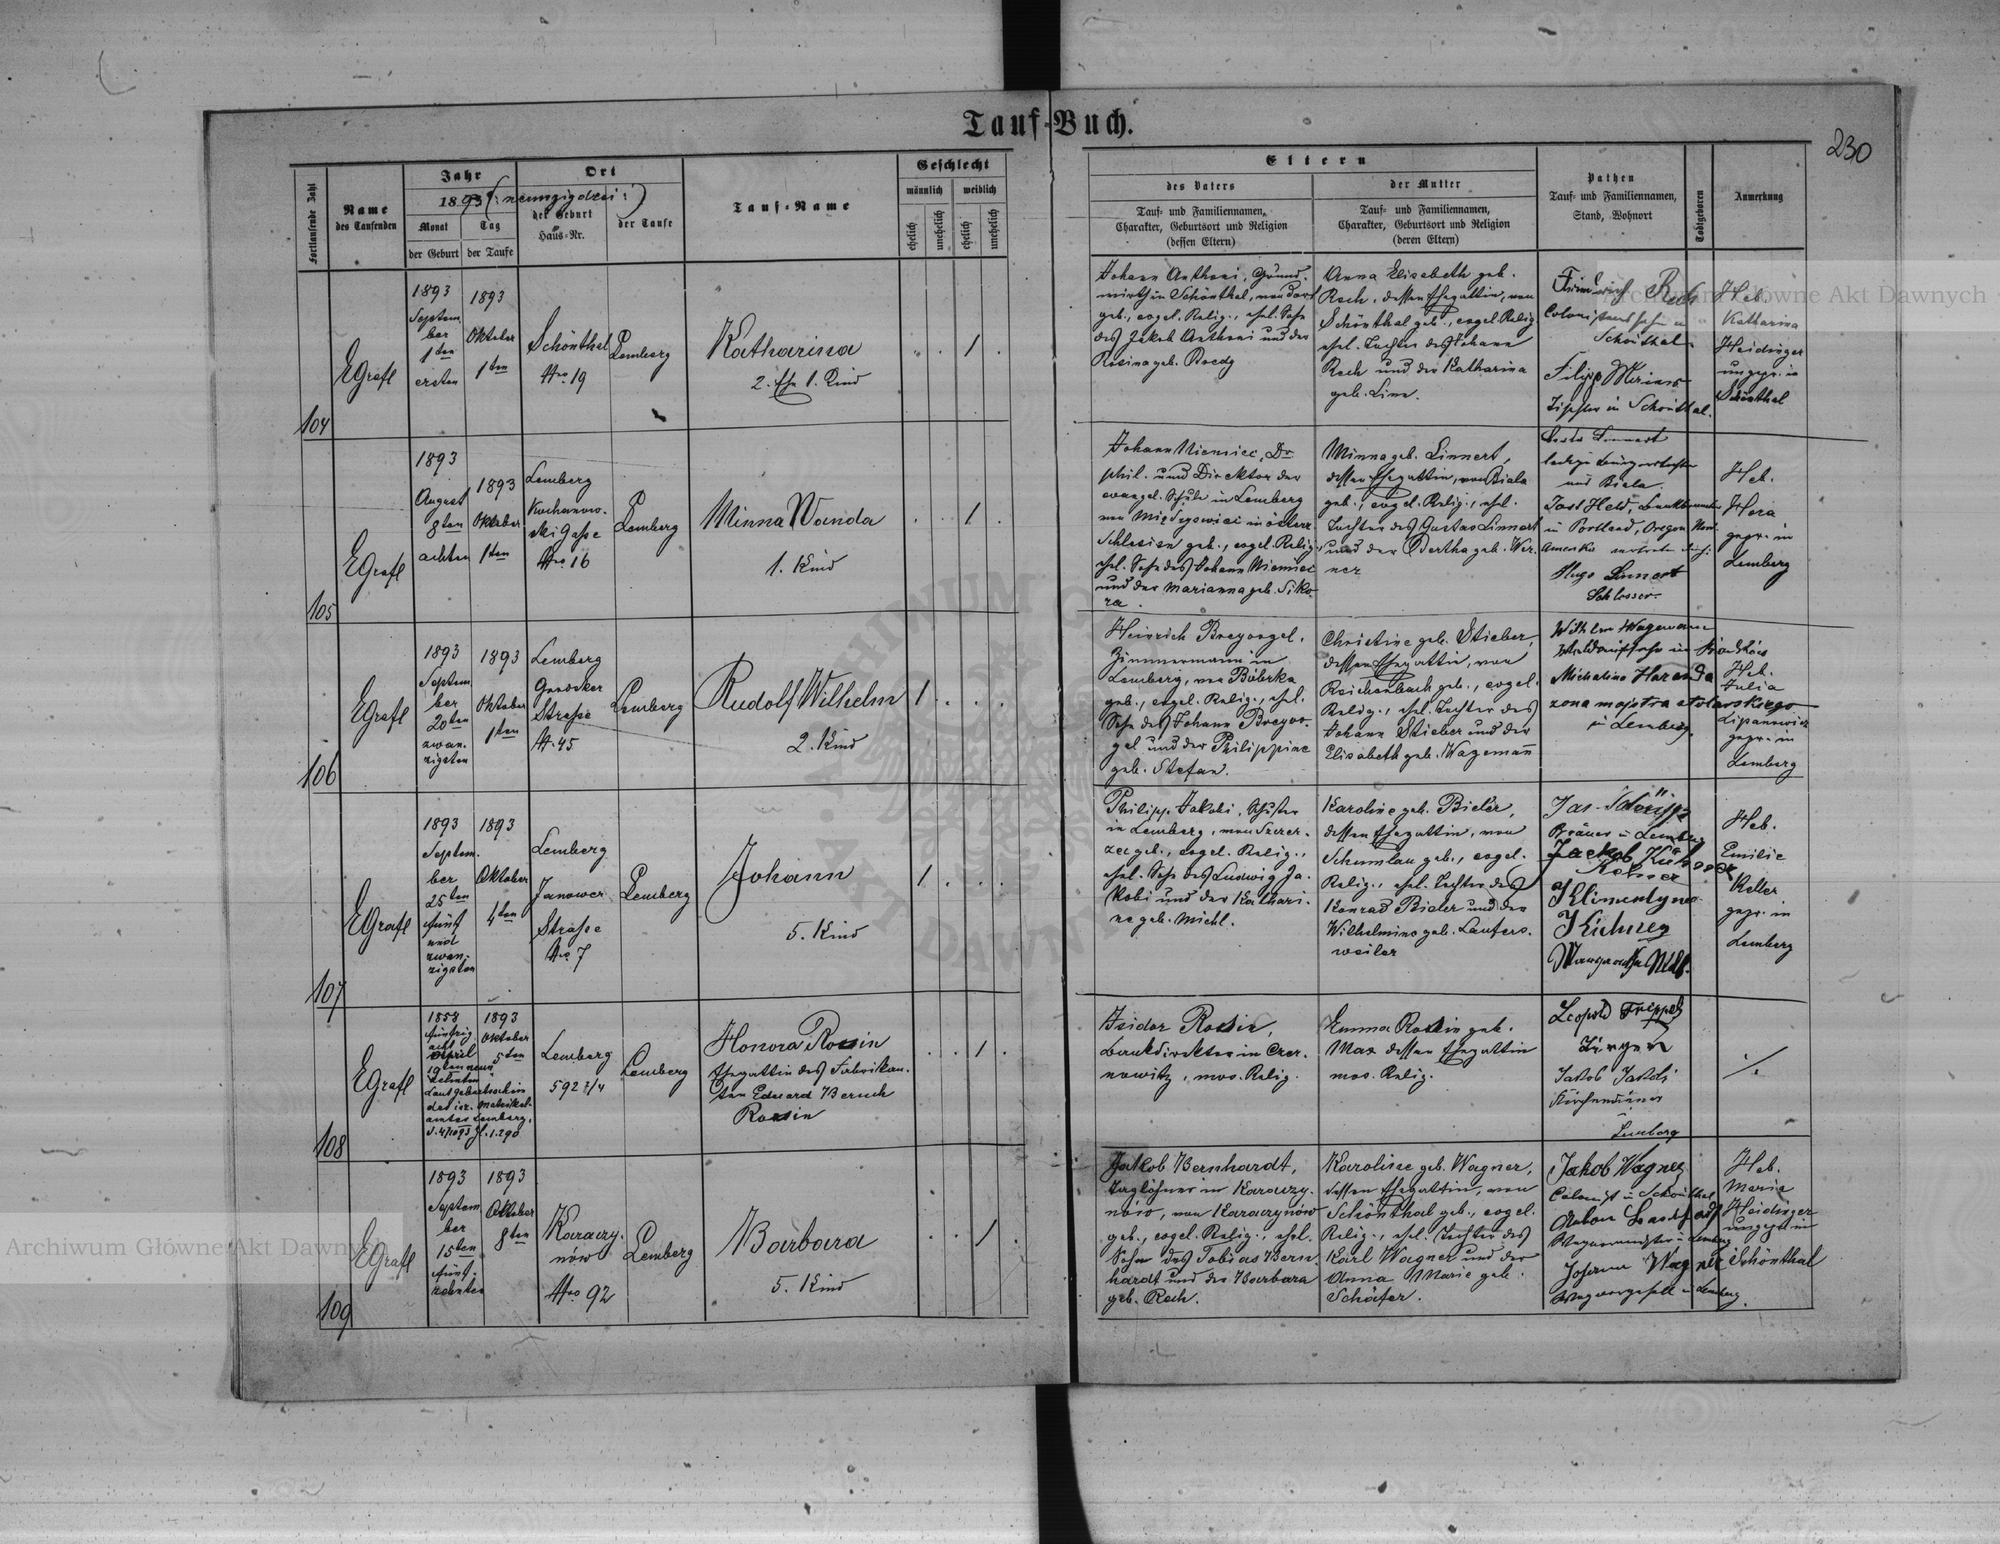 Tauf-Buch.
230
Fortlaufende Zahl
Name
des Taufenden
Jahr
1893 (: neunzigdrei :)
Monat
der Geburt
Tag
der Taufe
Ort
der Geburt
Haus-Nr.
der Taufe
Tauf-Name
Geschlecht
männlich
weiblich
ehelich
unehelich
ehelich
unehelich
Eltern
des Vaters
Tauf- und Familiennamen,
Charakter, Geburtsort und Religion
(dessen Eltern)
der Mutter
Tauf- und Familiennamen,
Charakter, Geburtsort und Religion
(deren Eltern)
Pathen
Tauf- und Familiennamen,
Stand, Wohnort
Todtgeboren
Anmerkung
104
EGrafl
1893
Septem
ber
1ten
ersten
1893
Oktober
1ten
Schönthal
Nro 19
Lemberg
Katharina
2. Ehe 1. Kind
1
Johann Anthoni, Grund-
wirth in Schönthal, von dort
geb., evgel. Relig., ehel. Sohn
des Jakob Anthoni und der
Rosina geb. Bredy
Anna Elisabeth geb.
Rech, dessen Ehegattin, von
Schönthal geb., evgel. Relig
ehel. Tochter des Johann
Rech und der Katharina
geb. Linn.
Friedrich Rech
Colonistenssohn in
Schönthal
Filipp
Tischler in Schönthal.
Heb.
Katharina
Heidinger
ungepr. in
Schönthal
105
EGrafl
1893
August
8ten
achten
1893
Oktober
1ten
Lemberg
Kochanow-
ski Gasse
Nro 16
Lemberg
Minna Wanda
1. Kind
1
Johann Niemiec, Dr
phil. und Direktor der
evangel. Schule in Lemberg
von in österr.
Schlesien geb., evgel. Relig.,
ehel. Sohn des Johann Niemiec
und der Marianna geb. Siko-
ra.
Minna geb. Linnert,
dessen Ehegattin, von Biala
geb., evgel. Relig., ehel.
Tochter des Gustav Linnert
und der Bertha geb. Wer-
ner
Linnert
ledige Bürgerstochter
aus Biala.
Held,
in Portland, Oregon Nord-
Amerika vertreten durch:
Hugo Linnert
Schlosser.
Heb.
Hera
gepr. in
Lemberg
106
EGrafl
1893
Septem
ber
20ten
zwan-
zigsten
1893
Oktober
1ten
Lemberg
Grodeker
Strasse
N. 45
Lemberg
Rudolf Wilhelm
2. Kind
1
Heinrich Breyvogel,
Zimmermann in
Lemberg, von Bóbrka
geb., evgel. Relig., ehel.
Sohn des Johann Breyvo-
gel und der Philippine
geb. Stefan.
Christine geb. Stieber,
dessen Ehegattin, von
Reichenbach geb., evgel.
Relig., ehel. Tochter des
Johann Stieber und der
Elisabeth geb. Wagemann
Wilhlm Wagemann
Michalina Harenda
zona majstra stolarskiego
in Lemberg.
Heb.
Julia
Lipanowicz
gepr. in
Lemberg
107
EGrafl
1893
Septem-
ber
25ten
fünf
und
zwan-
zigsten
1893
Oktober
4ten
Lemberg
Janower
Strasse
Nro 7
Lemberg
Johann
5. Kind
1
Philipp Jakobi, Schuster
in Lemberg, von Szczer-
zec geb., evgel. Relig.,
ehel. Sohn des Ludwig Ja-
kobi und der Kathari-
ne geb. Michl.
Karoline geb. Bieler,
dessen Ehegattin, von
Schumlau geb., evgel.
Relig., ehel. Tochter des
Konrad Bieler und der
Wilhelmine geb. Lauters-
weiler
Bräuer in Lemberg
Jackob
Klimentyna
Kühner
Heb.
Emilie
Keller
gepr. in
Lemberg
108
EGrafl
1858
fünfzig
acht
April
19ten neun
zehnten
Laut Geburtsschein
des isr. Matrikel-
amtes Lemberg,
1893
Oktober
5ten
Lemberg
592 2/4
Lemberg
Honora Rosin
Ehegattin des Fabrikan-
ten Eduard Beruch
Rosin
1
Isidor Rosin,
Bankdirektor in Czer-
nowitz, mos. Relig.
Emma Rosin geb.
Max dessen Ehegattin
mos. Relig.
Leopold Freppel
Bürger
Jakob Jakobi
Kirchendiener
Lemberg
./.
109
EGrafl
1893
Septem
ber
15ten
fünf-
zehnten
1893
Oktober
8ten
Karaczy-
nów
Nro 92
Lemberg
Barbara
5. Kind
1
Jakob Bernhardt,
Taglöhner in Karaczy-
nów, von Karaczynów
geb., evgel. Relig., ehel.
Sohn des Tobias Bern-
hardt und der Barbara
geb. Rech.
Karoline geb. Wagner,
dessen Ehegattin, von
Schönthal geb., evgel.
Relig., ehel. Tochter des
Karl Wagner und der
Anna Marie geb.
Schäfer.
Jakob Wagner
Colonist in Schönthal
Anton
Wagnermeister in Lemberg
Johann Wagner
Wagnergeselle in Lemberg.
Heb.
Marie
Heidinger
ungepr. in
Schönthal
Archiwum Główne Akt Dawnych
Archiwum Główne Akt Dawnych